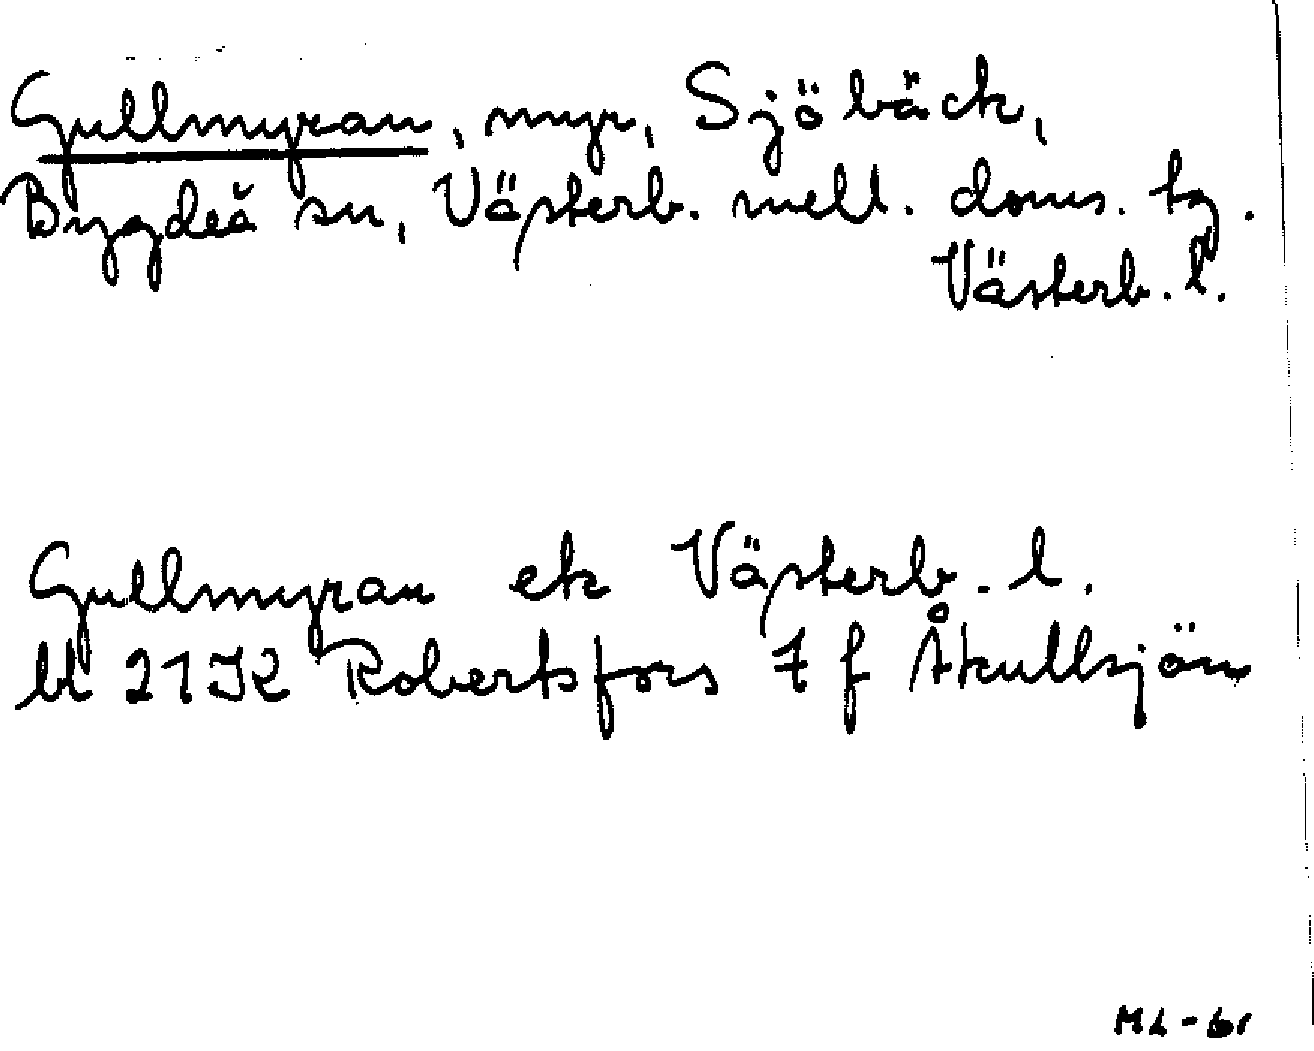 Gullmyran, myr, Sjöbäck,
Bygdeå sn, Västerb. mell. doms. tg.
Västerb. l.
Gullmyran ek Västerb. l.
bl 21 K Robertsfors 7 f Åkullsjön